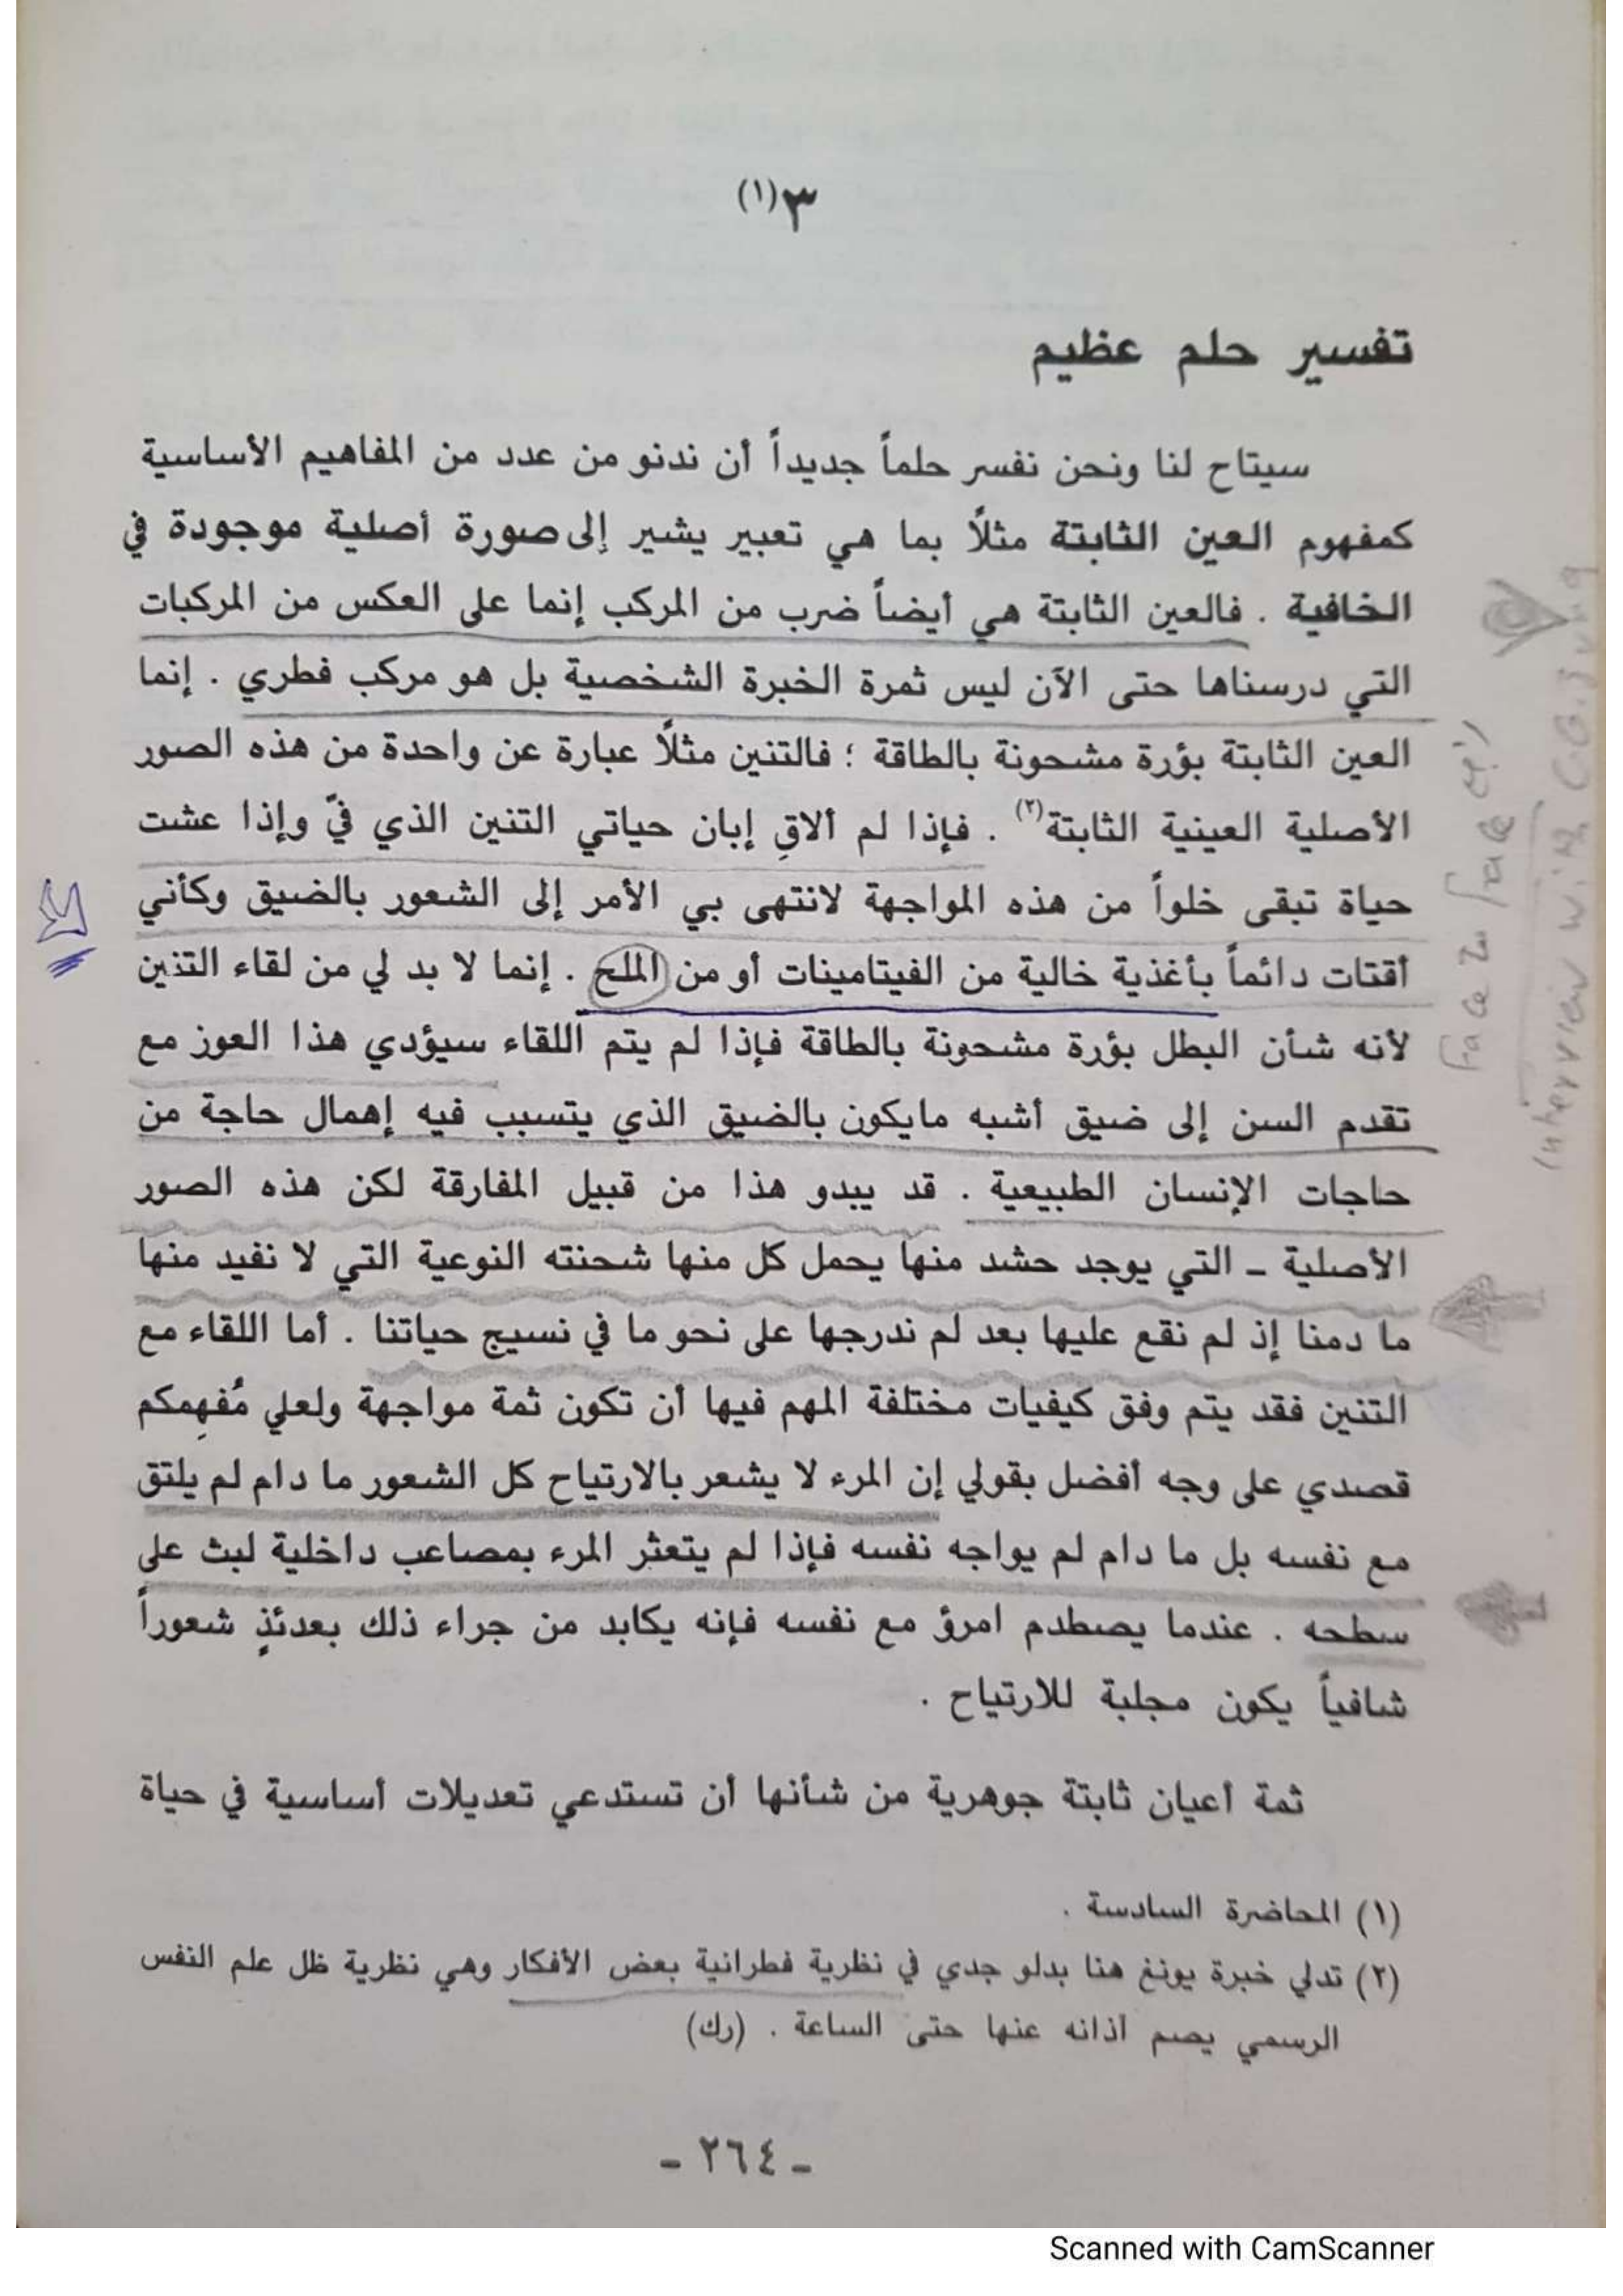 ٣(١)
تفسير حلم عظيم
سيتاح لنا ونحن نفسر حلماً جديداً أن ندنو من عدد من المفاهيم الأساسية
كمفهوم العين الثابتة مثلًا بما هي تعبير يشير إلى صورة أصلية موجودة في
الخافية . فالعين الثابتة هي أيضاً ضرب من المركب إنما على العكس من المركبات
التي درسناها حتى الآن ليس ثمرة الخبرة الشخصية بل هو مركب فطري . إنما
العين الثابتة بؤرة مشحونة بالطاقة ؛ فالتنين مثلًا عبارة عن واحدة من هذه الصور
الأصلية العينية الثابتة(٢) . فإذا لم ألاقِ إبان حياتي التنين الذي فيّ وإذا عشت
حياة تبقى خلواً من هذه المواجهة لانتهى بي الأمر إلى الشعور بالضيق وكأني
أقتات دائماً بأغذية خالية من الفيتامينات أو من الملح . إنما لا بد لي من لقاء التنين
لأنه شأن البطل بؤرة مشحونة بالطاقة فإذا لم يتم اللقاء سيؤدي هذا العوز مع
تقدم السن إلى ضيق أشبه مايكون بالضيق الذي يتسبب فيه إهمال حاجة من
حاجات الإنسان الطبيعية . قد يبدو هذا من قبيل المفارقة لكن هذه الصور
الأصلية ـ التي يوجد حشد منها يحمل كل منها شحنته النوعية التي لا نفيد منها
ما دمنا إذ لم نقع عليها بعد لم ندرجها على نحو ما في نسيج حياتنا . أما اللقاء مع
التنين فقد يتم وفق كيفيات مختلفة المهم فيها أن تكون ثمة مواجهة ولعلي مُفهِمكم
قصدي على وجه أفضل بقولي إن المرء لا يشعر بالارتياح كل الشعور ما دام لم يلتق
مع نفسه بل ما دام لم يواجه نفسه فإذا لم يتعثر المرء بمصاعب داخلية لبث على
سطحه . عندما يصطدم امرؤ مع نفسه فإنه يكابد من جراء ذلك بعدئذٍ شعوراً
شافياً يكون مجلبة للارتياح .
ثمة أعيان ثابتة جوهرية من شأنها أن تستدعي تعديلات أساسية في حياة
(١) المحاضرة السادسة .
(٢) تدلي خبرة يونغ هنا بدلو جدي في نظرية فطرانية بعض الأفكار وهي نظرية ظل علم النفس
الرسمي يصم آذانه عنها حتى الساعة . (رك)
ـ ٢٦٤ ـ
face zu face
Interview with C.G. Jung
Scanned with CamScanner